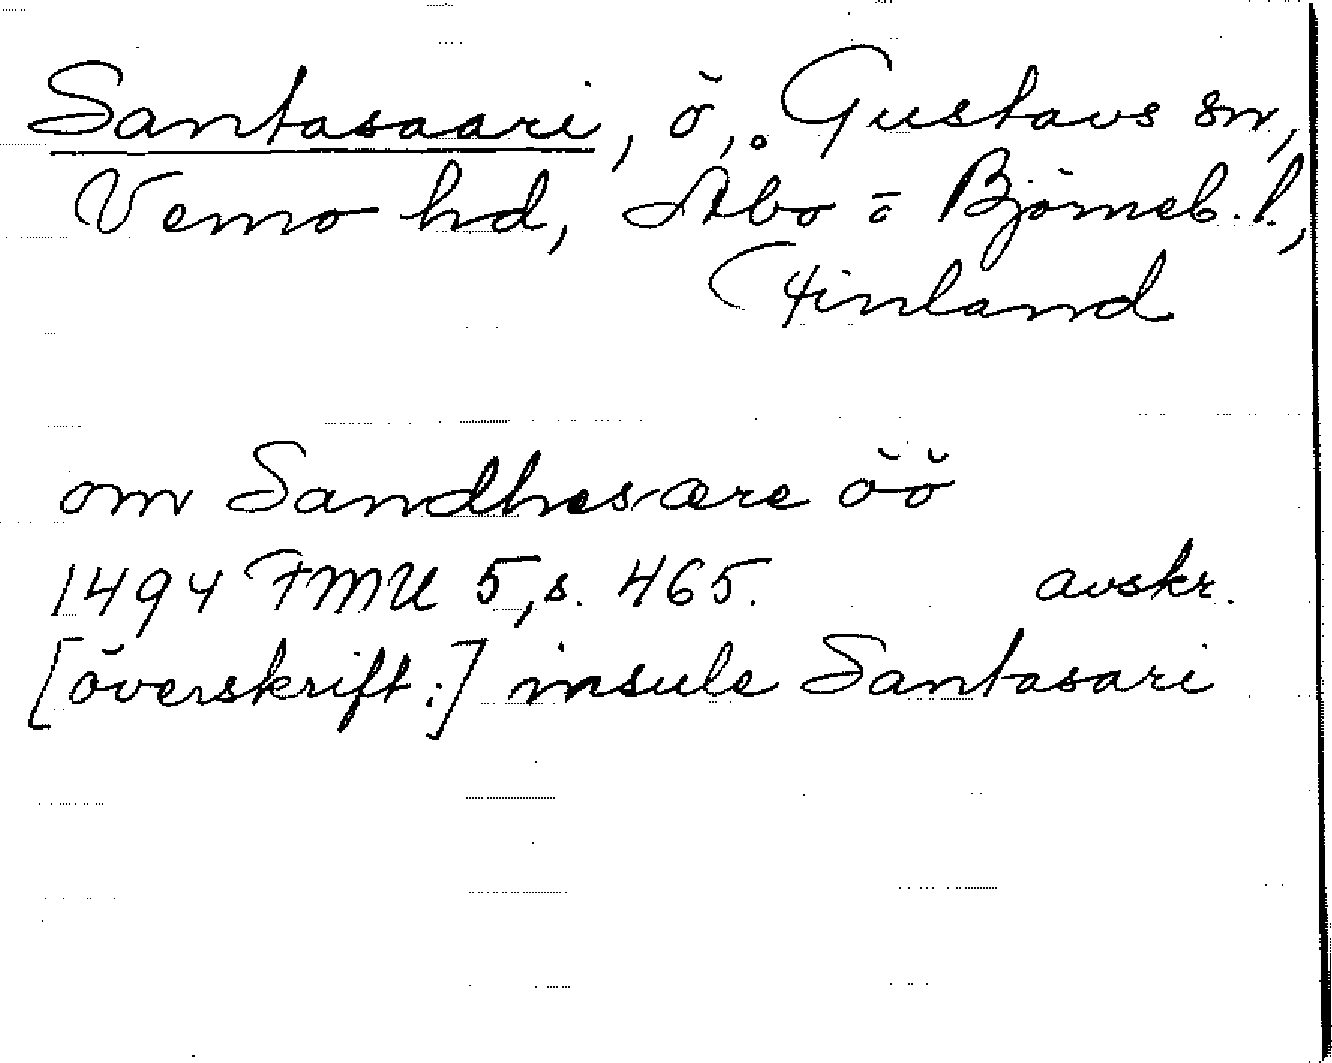 Santasaari, ö, Gustavs sn,
Vemo hd, Åbo o Björneb. l.,
Finland
om Sandhesære öö
1494 FMU 5, s. 465. avskr.
[överskrift:] insule Santasari